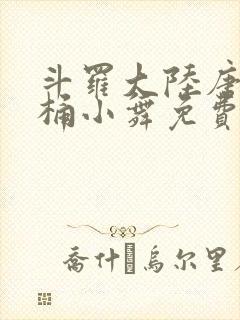 斗羅大陸唐
桶小舞免費
喬什·烏尔里